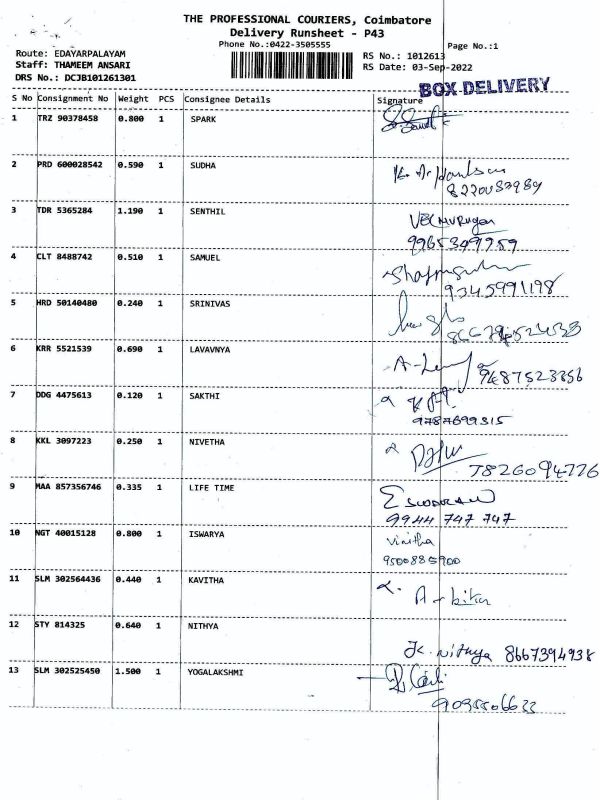 THE PROFESSIONAL COURIERS, Coimbatore
Delivery Runsheet - P43
Phone No.:0422-3505555
Page No.:1
Route: EDAYARPALAYAM
Staff: THAMEEM ANSARI
DRS No.: DCJB101261301
RS No.: 1012613
RS Date: 03-Sep-2022
BOX DELIVERY
S No Consignment No Weight PCS Consignee Details Signature
1 TRZ 90378458 0.800 1 SPARK
2 PRD 600028542 0.590 1 SUDHA
3 TDR 5365284 1.190 1 SENTHIL VELMURUGAN
9965349959
4 CLT 8488742 0.510 1 SAMUEL
9345991198
5 HRD 50140480 0.240 1 SRINIVAS
6 KRR 5521539 0.690 1 LAVAVNYA
9487523356
7 DDG 4475613 0.120 1 SAKTHI
9787699315
8 KKL 3097223 0.250 1 NIVETHA
7826094776
9 MAA 857356746 0.335 1 LIFE TIME
9944 747 747
10 NGT 40015128 0.800 1 ISWARYA Vinitha
9500885900
11 SLM 302564436 0.440 1 KAVITHA
12 STY 814325 0.640 1 NITHYA
K. Nithya 8667394938
13 SLM 302525450 1.500 1 YOGALAKSHMI